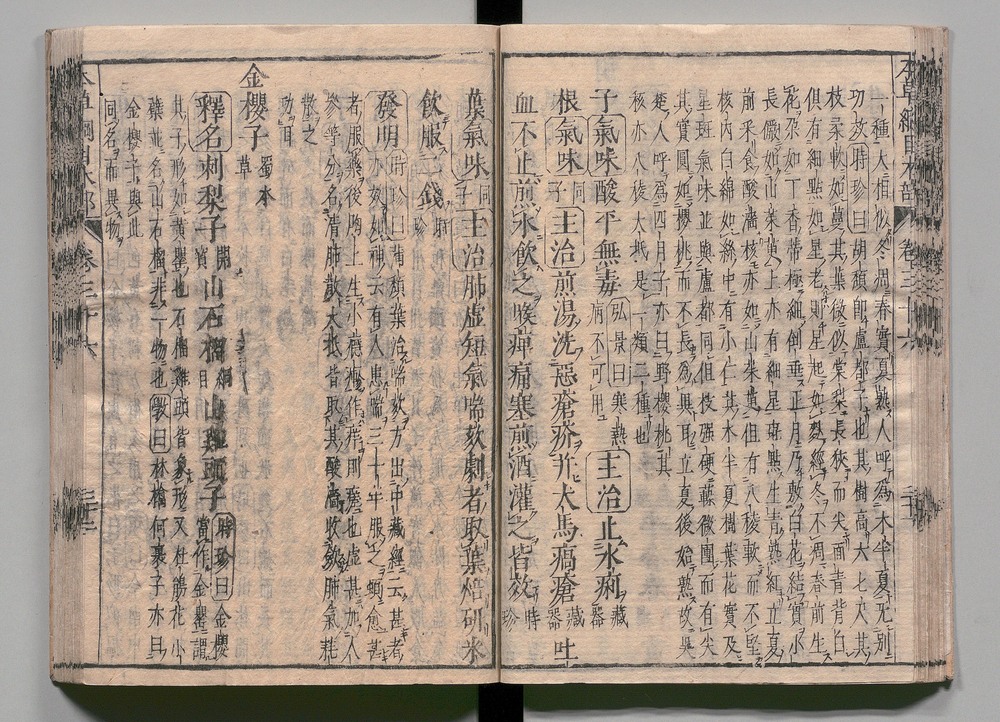 一種大相似冬凋春實夏熟人呼為木半夏无別
功效時珍曰胡頹即盧都子也其樹高六七尺其
枝柔軟如蔓其葉微似棠梨長狹而尖面青背白
俱有細點如星老則星起如麩經冬不凋春前生
花朶如丁香蒂極細倒垂正月乃敷白花結實小
長儼如山茱萸上亦有細星斑點生青熟紅立夏
前采食酸濇核亦如山茱萸但有八稜軟而不堅
核內白綿如絲中有小仁其木半夏樹葉花實及
星斑氣味並與盧都同但枝强硬葉微團而有尖
其實圓如櫻桃而不長為異耳立夏後始熟故吳
楚人呼為四月子亦曰野櫻桃其
核亦八稜大抵是一類二種也
子氣味酸平無毒弘景曰寒熱病不可用主治止水痢藏器
根氣味同子主治煎湯洗惡瘡疥并犬馬瘑瘡藏器吐
血不止煎水飲之喉痺痛塞煎酒灌之皆效時珍
葉氣味同子主治肺虛短氣喘欬劇者取葉焙研米
飲服二錢時珍
發明時珍曰蒲頹葉治喘欬方出中藏經云甚者
亦效如神云有人患喘三十年服之頓愈甚
者服藥後胸上生小癮疹作痒則瘥也虛甚加人
參等分名清肺散大抵皆取其酸濇收斂肺氣耗
散之
功耳
金櫻子蜀本草
釋名刺梨子開寶山石榴綱目山雞頭子時珍曰金櫻
當作金罌謂
其子形如黃罌也石榴雞頭皆象形又杜鵑花小
蘗並名山石榴非一物也斅曰林檎何裏子亦曰
金櫻子與此
同名而異物
本草綱目木部
卷三十六